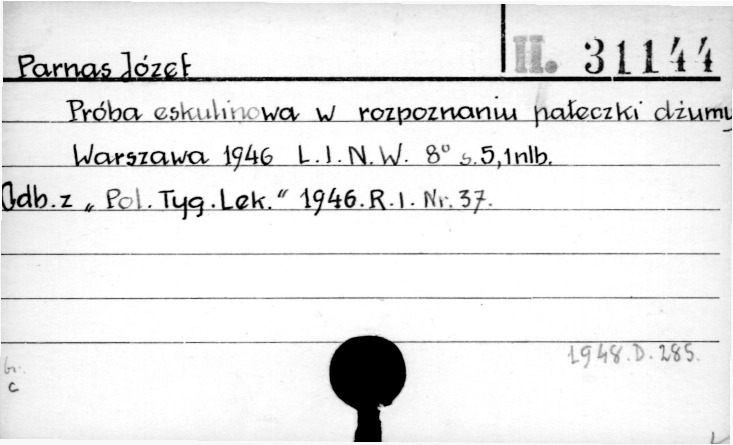 II. 31144
Parnas Józef
Próba eskulinowa w rozpoznaniu pałeczki dżumy
Warszawa 1946 L.I.N.W. 8° s.5,1nlb.
Odb. z „Pol. Tyg. Lek." 1946. R.I. Nr. 37.
1948.D.285.
br.
c